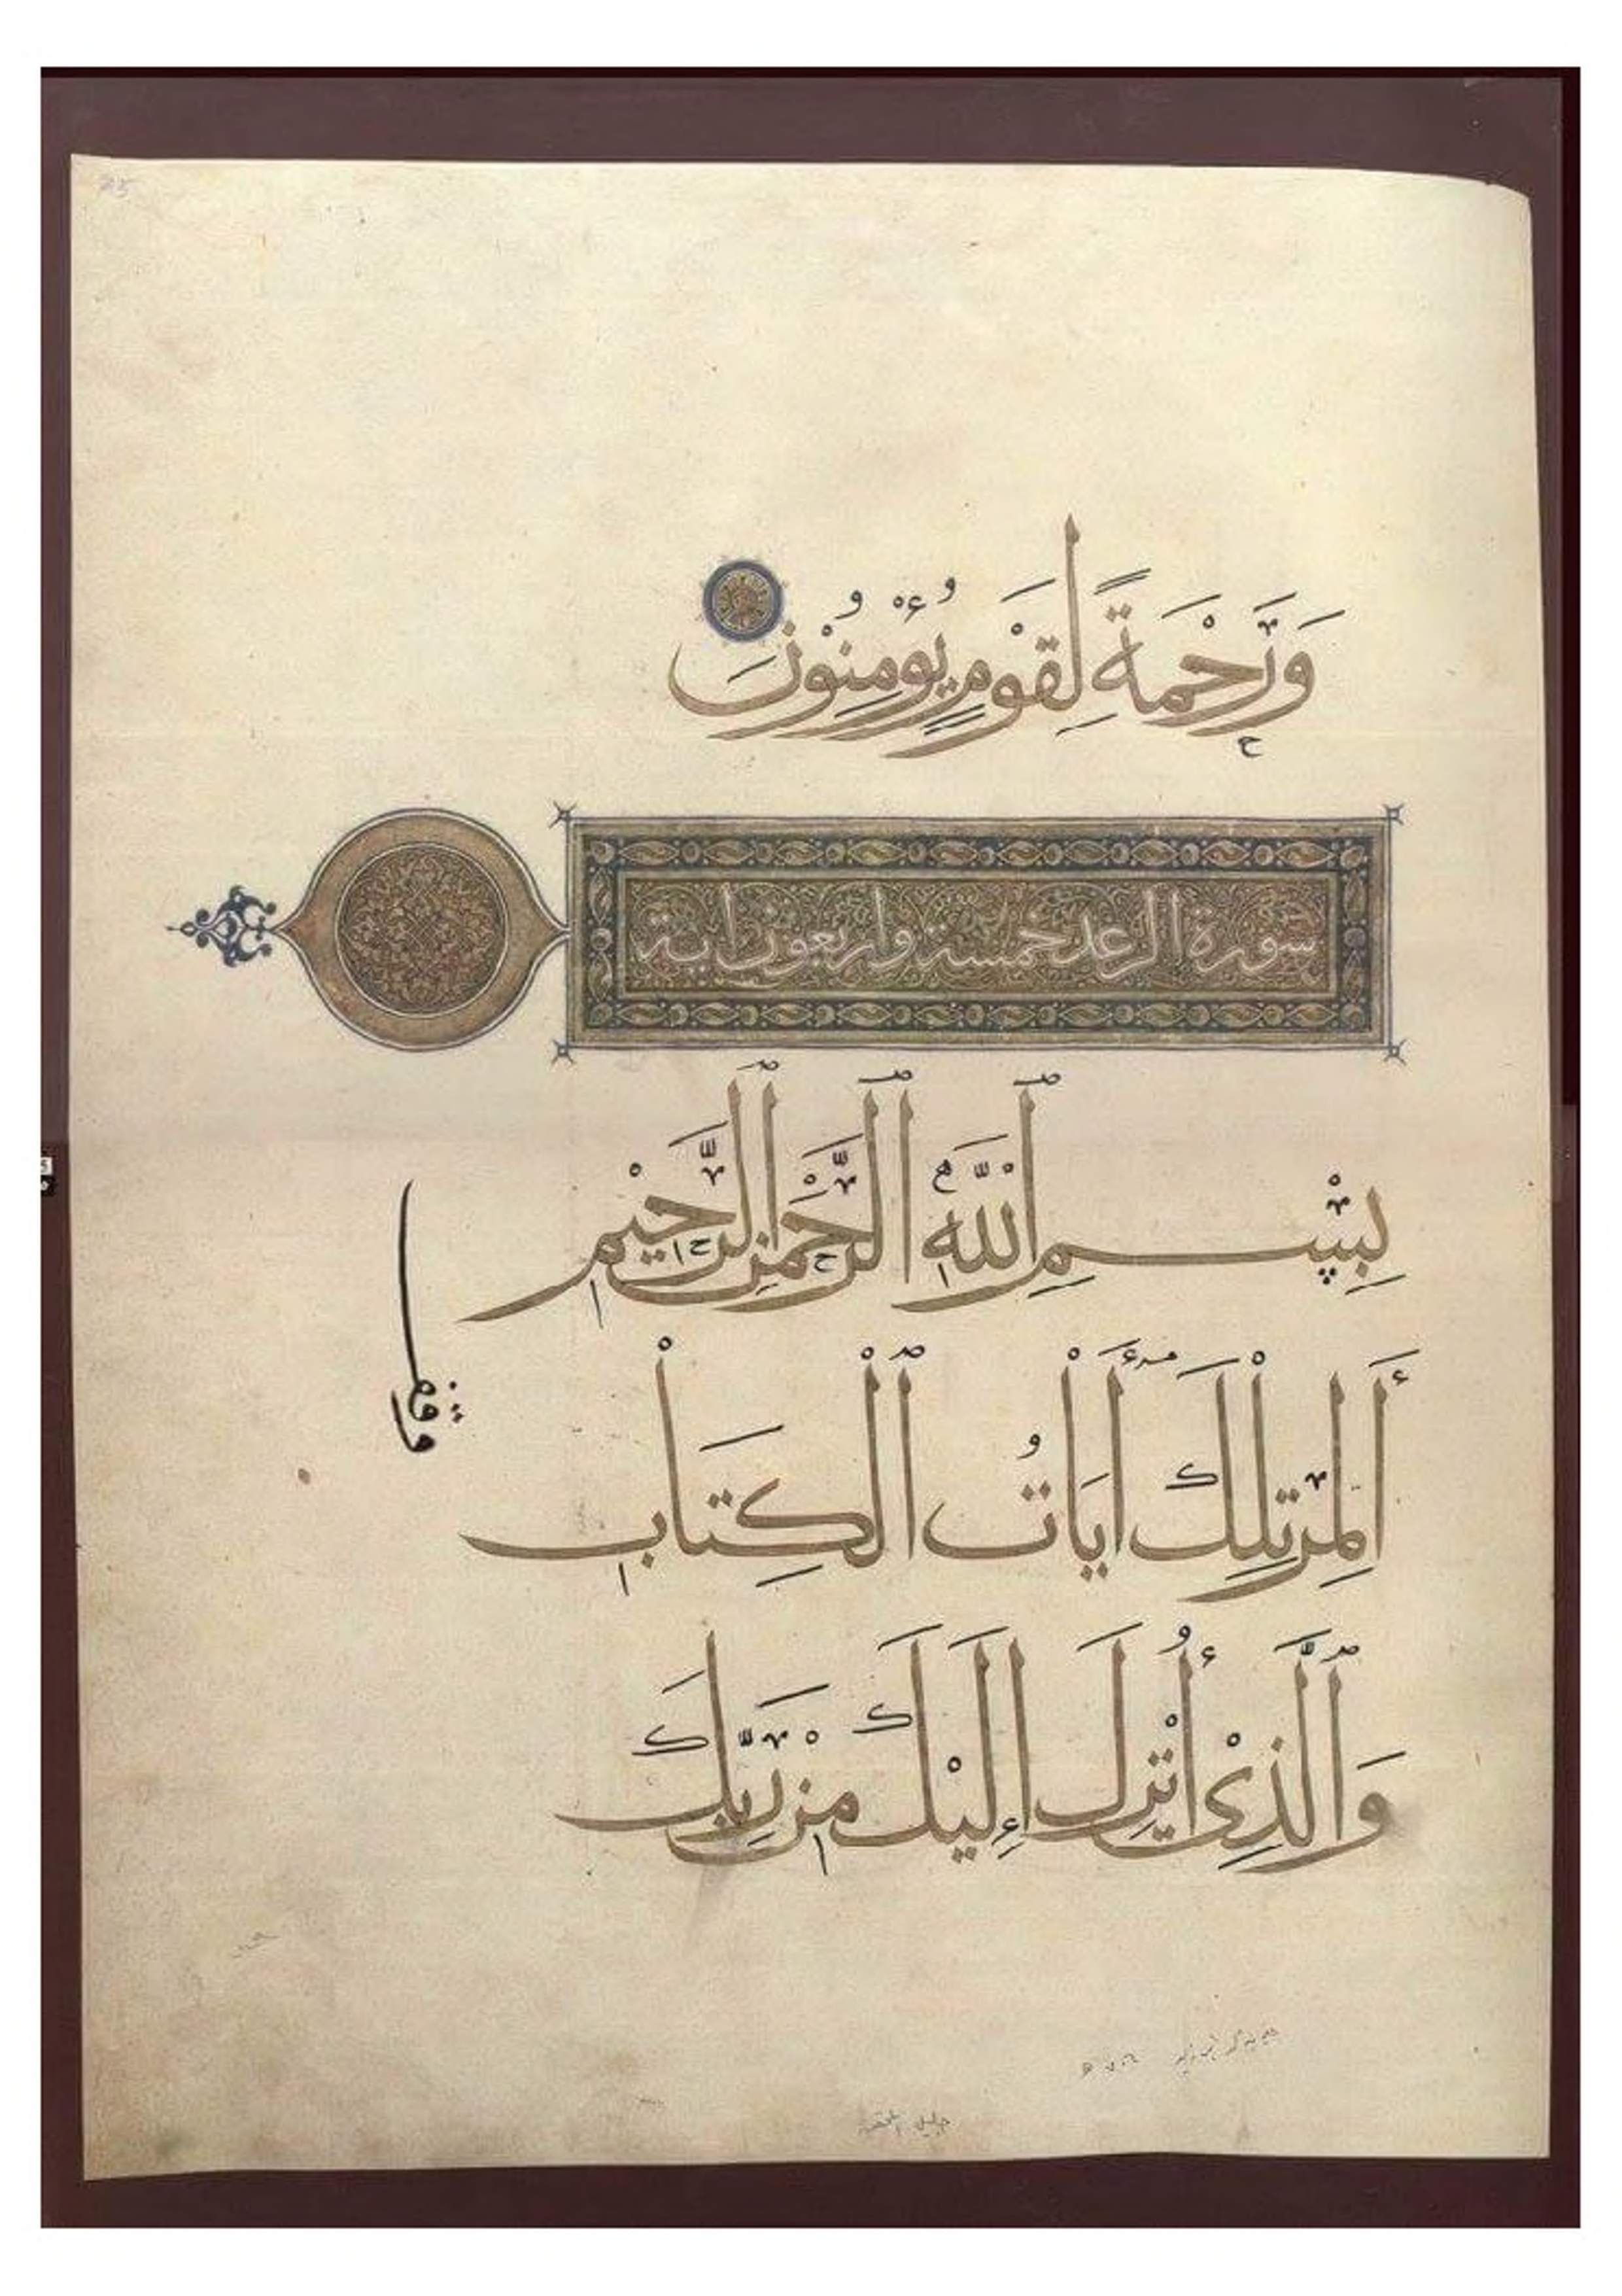 وَرَحْمَةً لِقَوْمٍ يُؤْمِنُوْنَ
سورة الرعد خمسة واربعون اية
بِسْمِ ٱللّٰهِ ٱلرَّحْمٰنِ ٱلرَّحِيْمِ
أَلمِرَ تِلْكَ أَايَاتُ ٱلْكِتَابِ
وَٱلَّذِىْ أُنْزِلَ إِلَيْكَ مِنْ رَبِّكَ
وقف